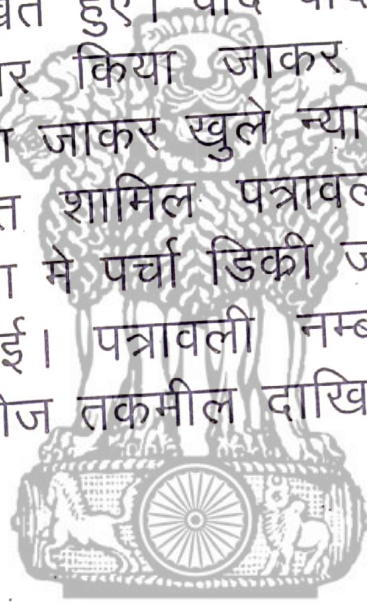 हुए।
किया जाकर
जाकर खुले
शामिल पत्रावल
मे पर्चा डिक्री
ई। पत्रावली नम्ब
तकमील दाखि